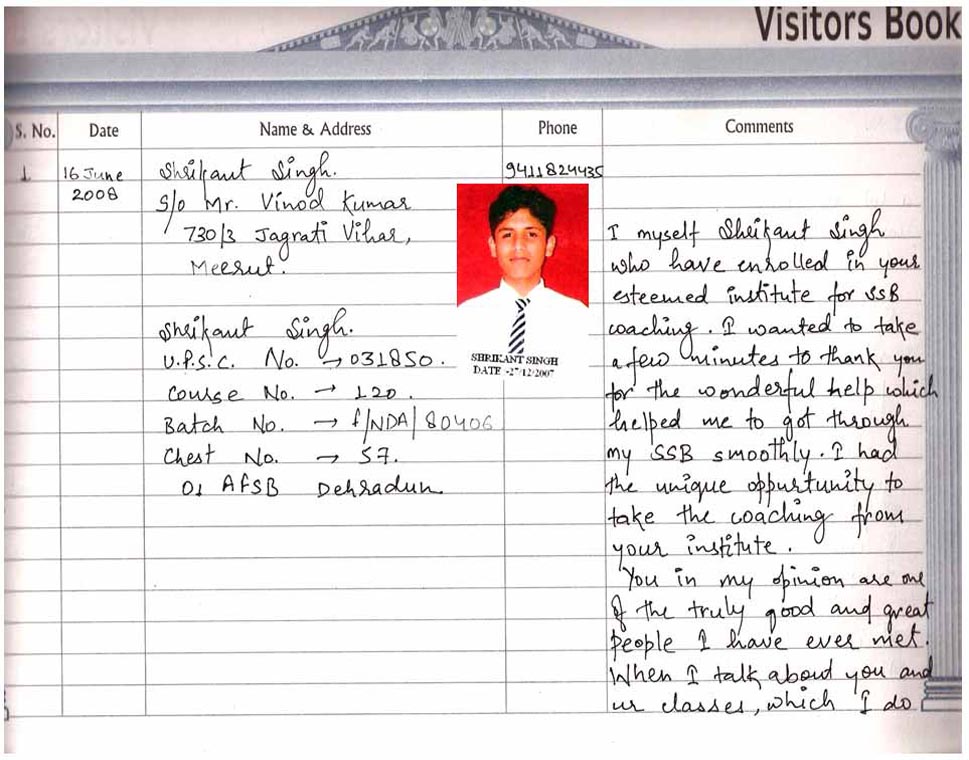 Visitors Book
S. No. Date Name & Address Phone Comments
1 16 June 2008
Shrikant Singh.
S/o Mr. Vinod Kumar
730/3 Jagrati Vihar,
Meerut.
9411824435
Shrikant Singh.
U.P.S.C. No. → 031850.
Course No. → 120.
Batch No. → f/NDA/80406
Chest No. → 57.
01 AFSB Dehradun
SHRIKANT SINGH
DATE -27/12/2007
I myself Shrikant Singh
who have enrolled in your
esteemed institute for SSB
coaching. I wanted to take
a few minutes to thank you
for the wonderful help which
helped me to got through
my SSB smoothly. I had
the unique oppurtunity to
take the coaching from
your institute.
You in my opinion are one
of the truly good and great
people I have ever met.
When I talk about you and
ur classes, which I do